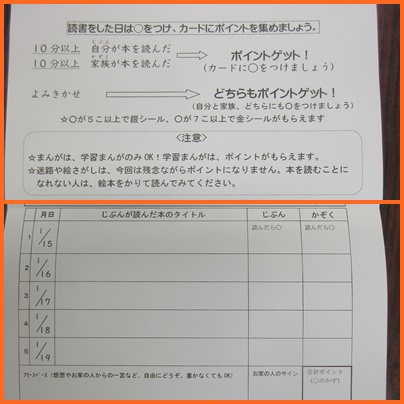 読書をした日は○をつけ、カードにポイントを集めましょう。
10分以上 自分が本を読んだ
10分以上 家族が本を読んだ
ポイントゲット!
(カードに○をつけましょう)
よみきかせ
どちらもポイントゲット!
(自分と家族、どちらにも○をつけましょう)
☆○が5こ以上で銀シール、○が7こ以上で金シールがもらえます
<注意>
☆まんがは、学習まんがのみOK!学習まんがは、ポイントがもらえます。
☆迷路や絵さがしは、今回は残念ながらポイントになりません。本を読むことに
なれない人は、絵本をかりて読んでみてください。
月日 じぶんが読んだ本のタイトル じぶん かぞく
1 1/15 読んだら○ 読んだら○
2 1/16
3 1/17
4 1/18
5 1/19
フリースペース(感想やお家の人からの一言など、自由にどうぞ。書かなくてもOK)
お家の人のサイン
合計ポイント
(○のかず)